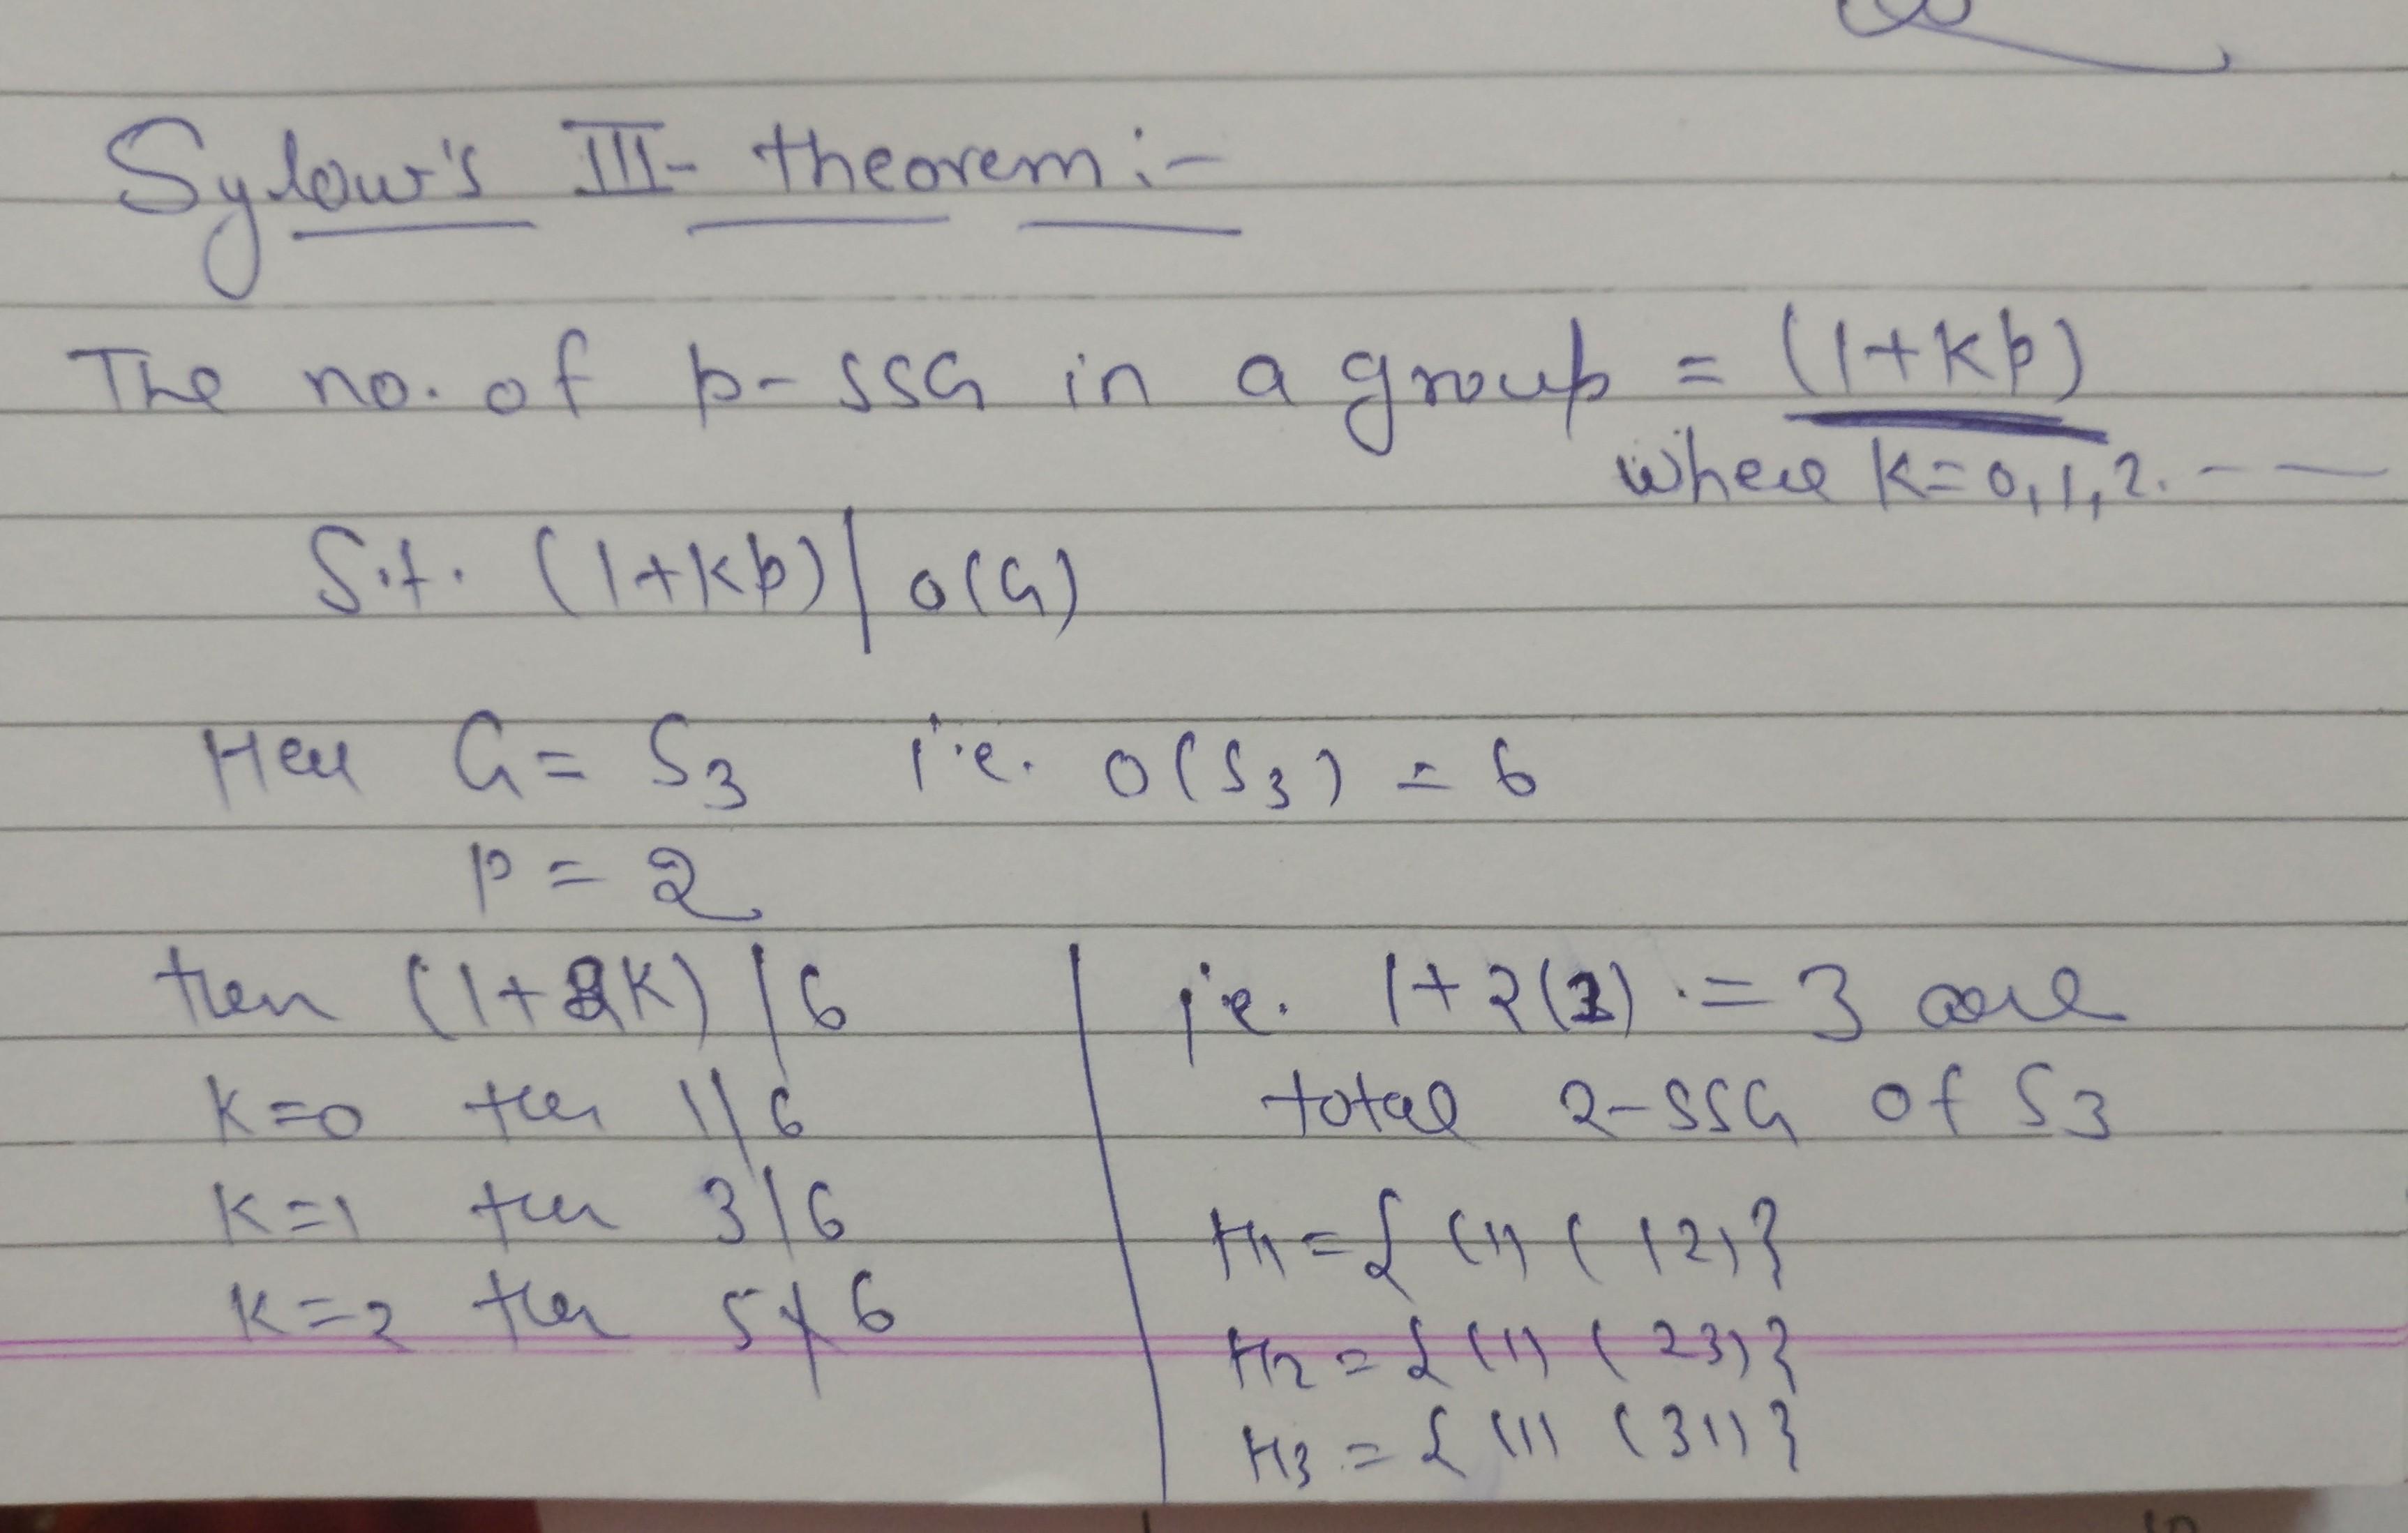 Sylow's III- theorem :-
The no. of p-SSG in a group = (1+kp)
where k=0,1,2.---
S.t. (1+kp) | o(G)
Here G = S3 i.e. o(S3) = 6
P = 2
then (1+2k) | 6
k=0 then 1 | 6
k=1 then 3 | 6
k=2 then 5 ∤ 6
i.e. 1+2(1) = 3 are
total 2-SSG of S3
H1 = { (1) (12) }
H2 = { (1) (23) }
H3 = { (1) (31) }